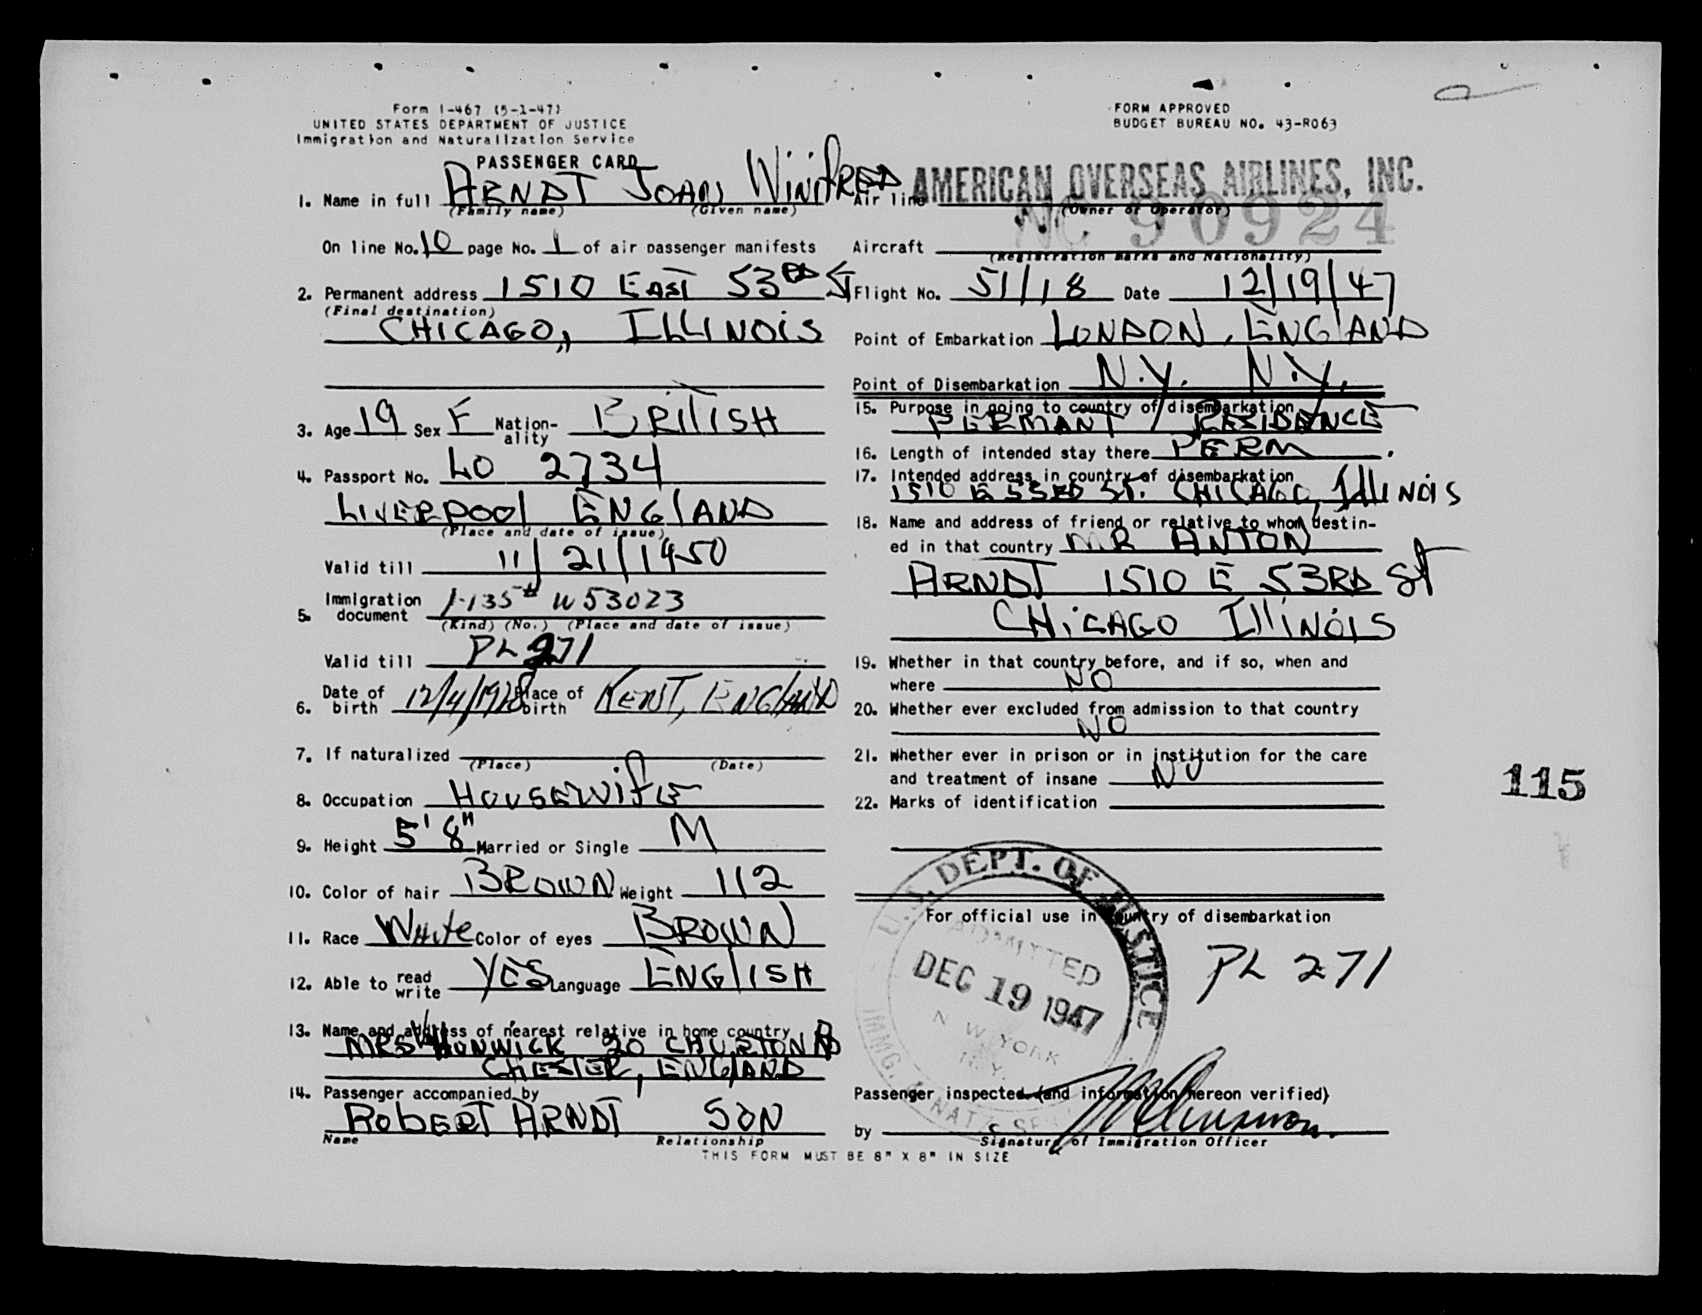 Form I-467 (5-1-47)
UNITED STATES DEPARTMENT OF JUSTICE
Immigration and Naturalization Service
PASSENGER CARD
FORM APPROVED
BUDGET BUREAU NO. 43-R063
1. Name in full ARNDT JOAN WINIFRED
(Family name) (Given name)
On line No. 10 page No. 1 of air passenger manifests
2. Permanent address 1510 EAST 53RD ST
(Final destination)
CHICAGO, ILLINOIS
3. Age 19 Sex F Nation-ality BRITISH
4. Passport No. LO 2734
LIVERPOOL ENGLAND
(Place and date of issue)
Valid till 11/21/1950
5. Immigration document I-135 # W53023
(Kind) (No.) (Place and date of issue)
Valid till PL 271
6. Date of birth 12/4/1928 Place of birth KENT, ENGLAND
7. If naturalized
(Place) (Date)
8. Occupation HOUSEWIFE
9. Height 5' 8" Married or Single M
10. Color of hair BROWN Weight 112
11. Race WHITE Color of eyes BROWN
12. Able to read write YES Language ENGLISH
13. Name and address of nearest relative in home country
MRS HUNWICK 20 CHURTON RD
CHESTER, ENGLAND
14. Passenger accompanied by
ROBERT ARNDT SON
Name Relationship
Air line AMERICAN OVERSEAS AIRLINES, INC.
(Owner or Operator)
Aircraft NC 90924
(Registration marks and Nationality)
Flight No. 51/18 Date 12/19/47
Point of Embarkation LONDON, ENGLAND
Point of Disembarkation N.Y. N.Y.
15. Purpose in going to country of disembarkation
PERMANT RESIDENCE
16. Length of intended stay there PERM.
17. Intended address in country of disembarkation
1510 E 53RD ST. CHICAGO, ILLINOIS
18. Name and address of friend or relative to whom destin-
ed in that country MR ANTON
ARNDT 1510 E 53RD St
CHICAGO ILLINOIS
19. Whether in that country before, and if so, when and
where NO
20. Whether ever excluded from admission to that country
NO
21. Whether ever in prison or in institution for the care
and treatment of insane NO
22. Marks of identification
115
For official use in country of disembarkation
U.S. DEPT. OF JUSTICE
ADMITTED
DEC 19 1947
N. YORK
N.Y.
IMMG. & NATZ. SE
PL 271
Passenger inspected (and information hereon verified)
by
Signature of Immigration Officer
THIS FORM MUST BE 8" X 8" IN SIZE